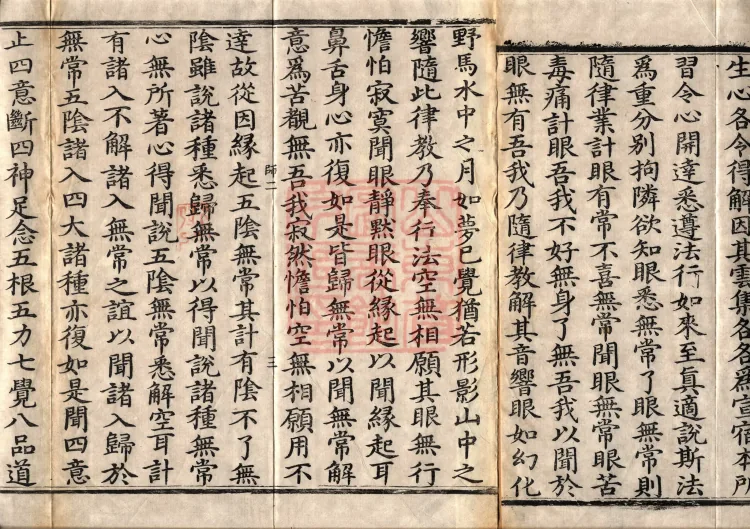 生心各令得解因其雲集各各爲宣宿本所
習令心開達悉遵法行如來至真適說斯法
爲重分別拘隣欲知眼悉無常了眼無常則
隨律業計眼有常不喜無常聞眼無常眼苦
毒痛計眼吾我不好無身了無吾我以聞於
眼無有吾我乃隨律教解其音響眼如幻化
野馬水中之月如夢已覺猶若形影山中之
響隨此律教乃奉行法空無相願其眼無行
憺怕寂寞聞眼靜默眼從緣起以聞緣起耳
鼻舌身心亦復如是皆歸無常以聞無常解
意爲苦觀無吾我寂然憺怕空無相願用不
達故從因緣起五陰無常其計有陰不了無
師二 三
陰雖說諸種悉歸無常以得聞說諸種無常
心無所著心得聞說五陰無常悉解空耳計
有諸入不解諸入無常之誼以聞諸入歸於
無常五陰諸入四大諸種亦復如是聞四意
止四意斷四神足念五根五力七覺八品道